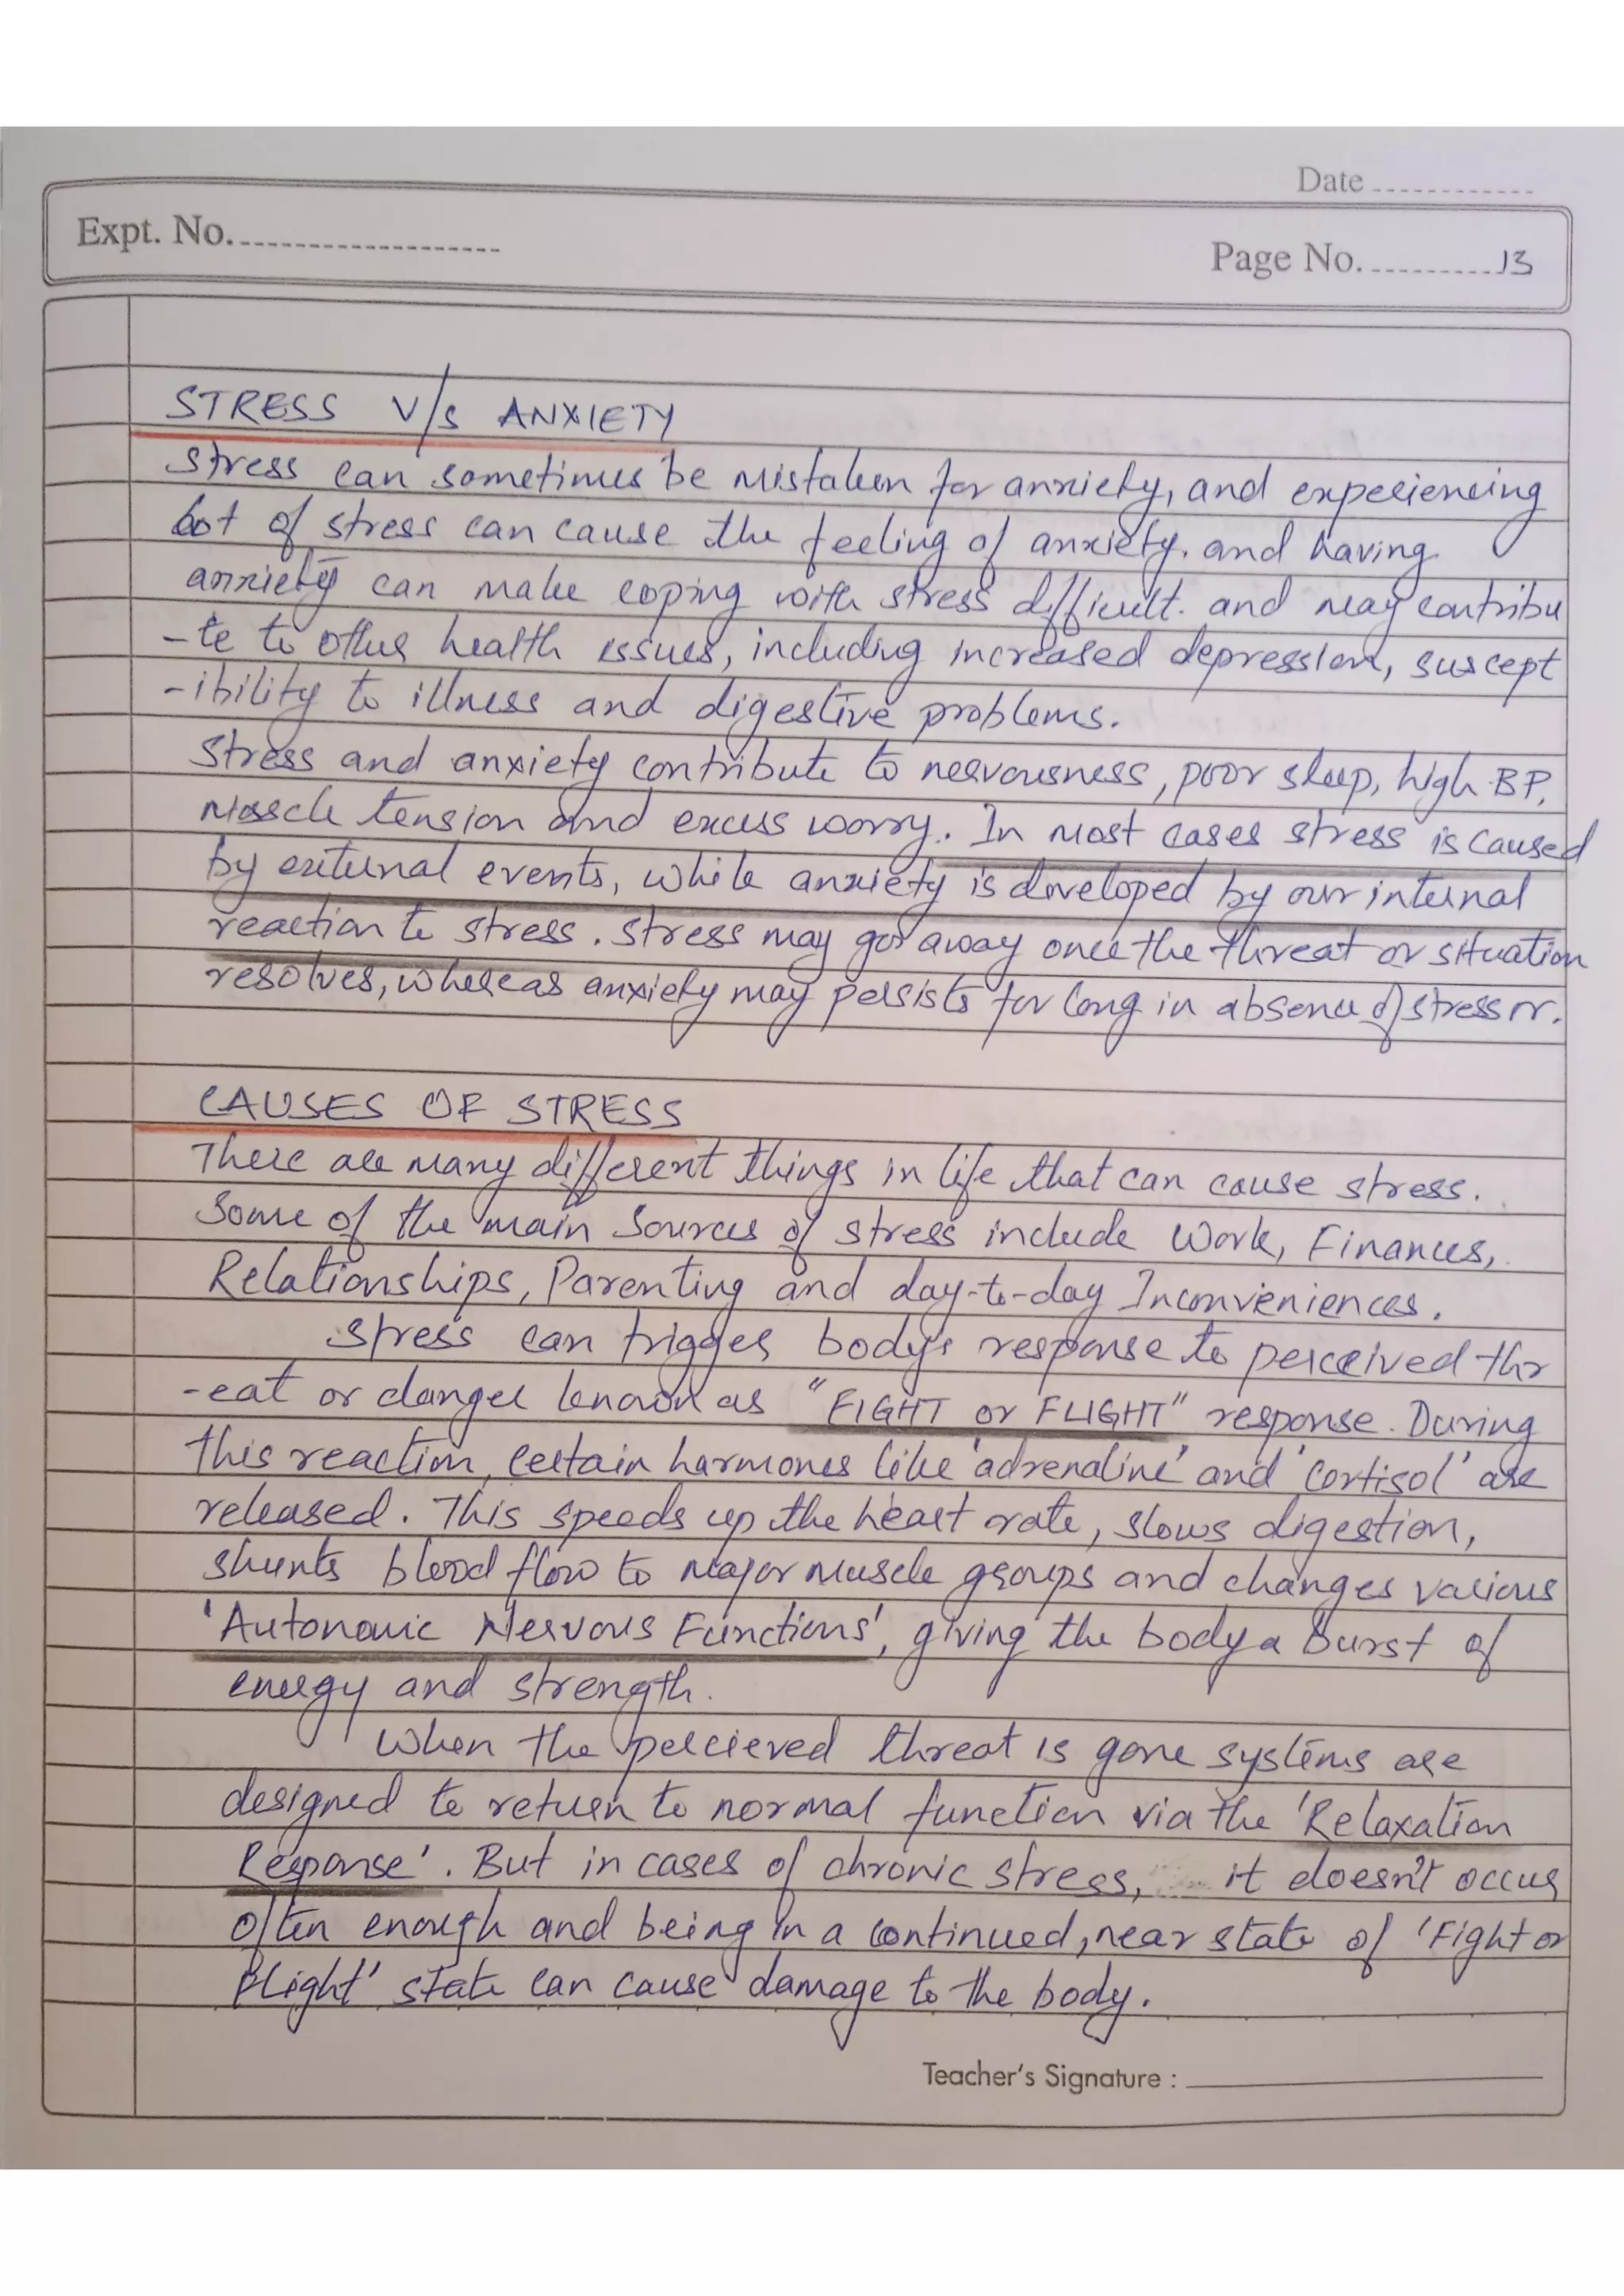 Date ............
Expt. No. ....................
Page No. ..........13
STRESS V/s ANXIETY
Stress can sometimes be mistaken for anxiety, and experiencing
lot of stress can cause the feeling of anxiety. and having
anxiety can make coping with stress difficult. and may contribu
-te to other health issues, including increased depression, suscept
-ibility to illness and digestive problems.
Stress and anxiety contribute to nervousness, poor sleep, high BP,
muscle tension and excess worry. In most cases stress is caused
by external events, while anxiety is developed by our internal
reaction to stress. Stress may go away once the threat or situation
resolves, whereas anxiety may persists for long in absence of stressor.
CAUSES OF STRESS
There are many different things in life that can cause stress.
Some of the main sources of stress include Work, Finances,
Relationships, Parenting and day-to-day Inconveniences.
Stress can trigger body's response to perceived thr
-eat or danger known as "FIGHT or FLIGHT" response. During
this reaction, certain harmones like 'adrenaline' and 'cortisol' are
released. This speeds up the heart rate, slows digestion,
shunts blood flow to major muscle groups and changes various
'Autonomic Nervous Functions', giving the body a burst of
energy and strength.
When the percieved threat is gone systems are
designed to return to normal function via the 'Relaxation
Response'. But in cases of chronic stress, it doesn't occur
often enough and being in a continued, near state of 'Fight or
Flight' state can cause damage to the body.
Teacher's Signature :